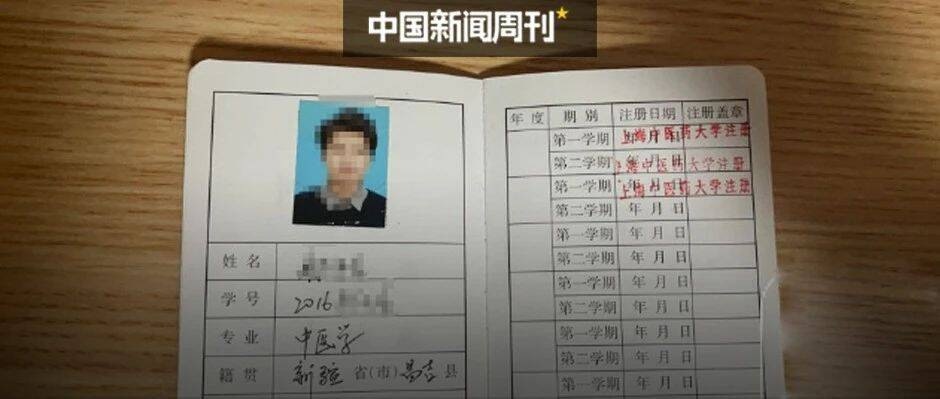 中国新闻周刊
姓名
学号 2016
专业 中医学
籍贯 新疆 省(市) 昌吉 县
年度 期别 注册日期 注册盖章
第一学期 年 月 日 上海中医药大学注册
第二学期 年 月 日 上海中医药大学注册
第一学期 年 月 日 上海中医药大学注册
第二学期 年 月 日
第一学期 年 月 日
第二学期 年 月 日
第一学期 年 月 日
第二学期 年 月 日
第一学期 年 月 日
第二学期 年 月 日
第一学期 年 月 日